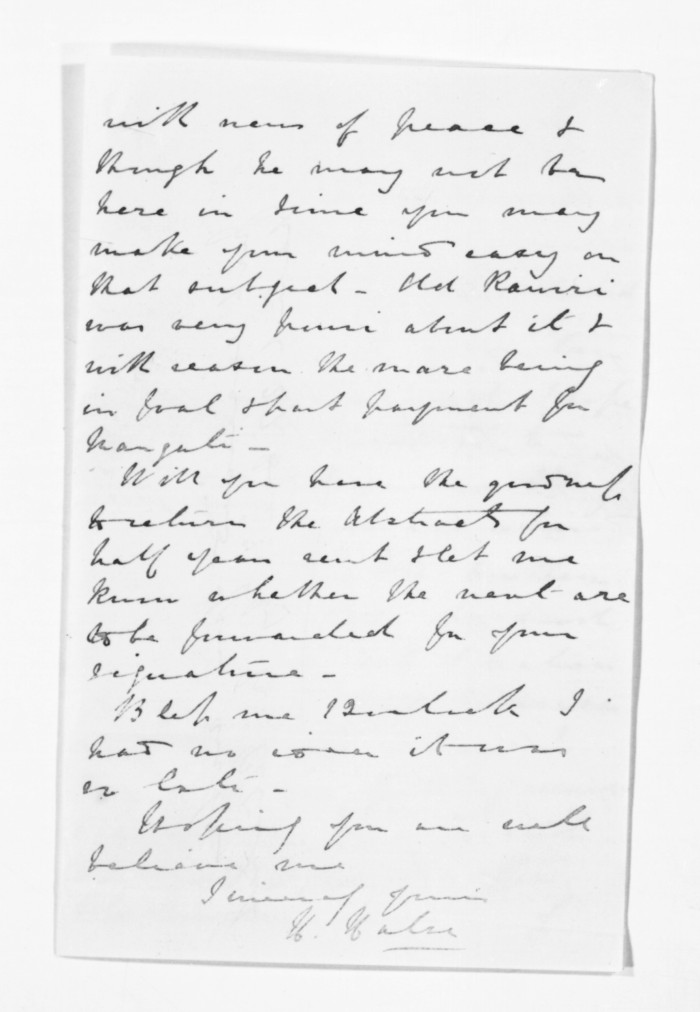 with news of peace &
though he may not be
here in time you may
make your mind easy on
that subject - Old Rawiri
was very pouri about it &
with reason the mare being
in foal & part payment for
Mangati -
Will you have the goodness
to return the Abstracts for
half year sent & let me
know whether the next are
to be forwarded for your
signature -
Bless me 12 o'clock I
had no idea it was
so late -
Hoping you are well
believe me
Sincerely yours
H. Halse